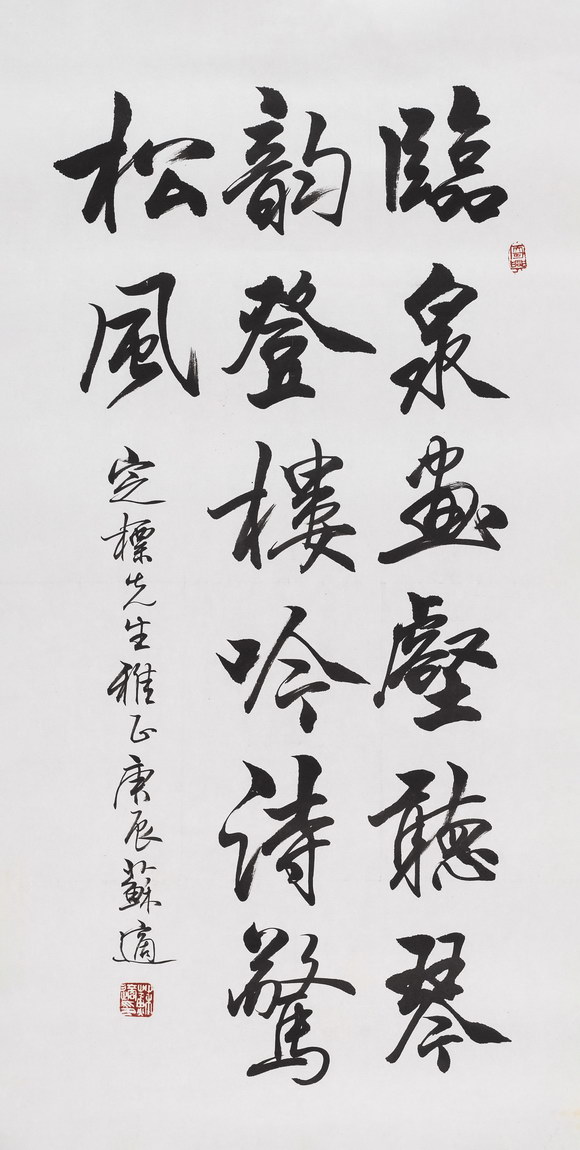 臨泉畫壑聽琴
韻登樓吟詩驚
松風
定標先生雅正庚辰蘇適